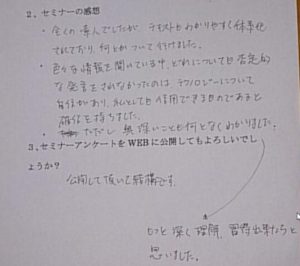 2、セミナーの感想
・全くの素人でしたが テキストもわかりやすく体系化
されており、何とかついて行けました。
・色々な情報を聞いている中、どれについても否定的
な発言をされなかったのは テクノロジーについて
自信があり、私としても信用できるものであると
確信を持ちました。
・ただし 奥深いことも何となくわかりました。
3、セミナーアンケートをWEBに公開してもよろしいでし
ょうか?
公開して頂いて結構です。
もっと深く理解、習得出来たらと
思いました。